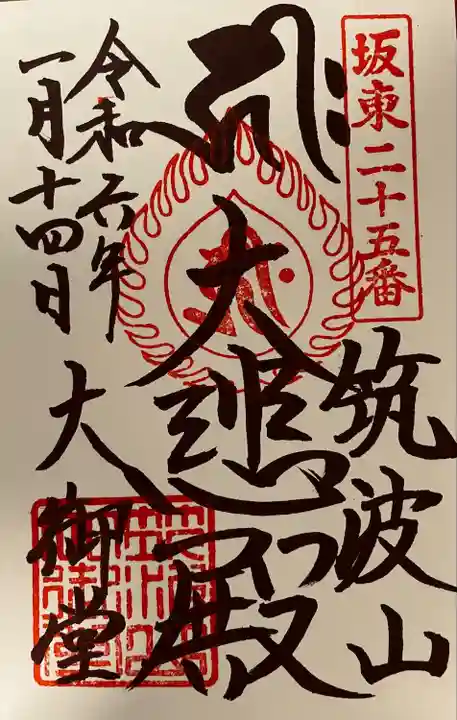 坂東二十五番
筑波山
大悲殿
令和六年
一月十四日
大御堂